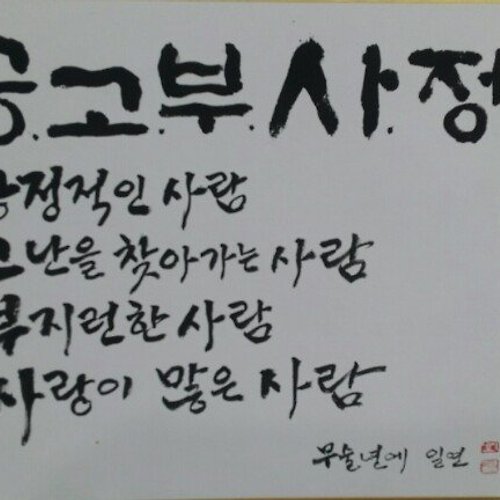 긍.고.부.사.정
긍정적인 사람
고난을 찾아가는 사람
부지런한 사람
사랑이 많은 사람
무술년에 일연